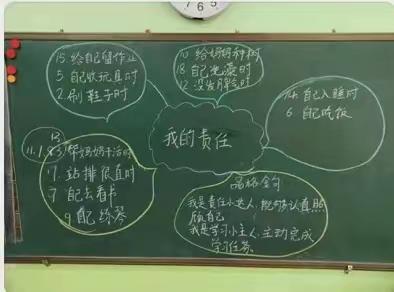 15. 给自己留作业
5 自己收玩具时
2. 刷鞋子时
10 给妈妈种树
18 自己洗澡时
12 没发脾气时
14 自己入睡时
6 自己吃饭
我的责任
13
11.1.8.3 帮妈妈干活时
17. 站排很直时
7 自己去看书
9 自己练琴
品格金句
我是责任小达人,能够认真照顾自己
我是学习小主人,主动完成学习任务